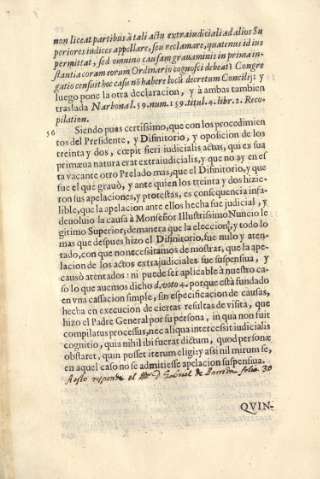 non liceat partibus à tali actu extraiudiciali ad alios Su
periores iudices appellare, seu reclamare, quatenus id ius
permittat, sed omnino causam grauaminis in prima in-
stantia coram eorum Ordinario cognosci debeat: Congre
gatio censuit hoc casu nō habere locū decretum Concilij: y
luego pone la otra declaracion, y à ambas tambien
traslada Narbona l. 59. num. 159. titul. 4. libr. 2. Reco-
pilation.
56 Siendo pues certissimo, que con los procedimien
tos del Presidente, y Difinitorio, y oposicion de los
treinta y dos, cœpit fieri iudicialis actus, qui ex sui
primæua natura erat extraiudicialis, y que no ay en es
ta vacante otro Prelado mas, que el Difinitorio, y que
fue el que grauò, y ante quien los treinta y dos hizie-
ron sus apelaciones, y protestas, es consequencia infa-
lible, que la apelacion ante ellos hecha fue judicial, y
deuoluio la causa à Monseñor Illustrissimo Nuncio le
gitimo Superior; demanera que la eleccion, y todo lo
mas que despues hizo el Difinitorio, fue nulo y aten-
tado, con que no necessitamos de mostrar, que la ape-
lacion de los actos extrajudiciales fue suspensiua, y
causò atentados: ni puede ser aplicable à nuestro ca-
so lo que auemos dicho d. voto 4. porque està fundado
en vna cassacion simple, sin especificacion de causas,
hecha en execucion de ciertas resultas de visita, que
hizo el Padre General por su persona, in qua non fuit
compilatus processus, nec aliqua intercessit iudicialis
cognitio, quia nihil ibi fuerat dictum, quod personæ
obstaret, quin posset iterum eligi: y assi nil mirum se,
en aquel caso no se admitiesse apelacion suspensiua.
A esto responde el M. D. Gabriel de folio 30
QVIN-